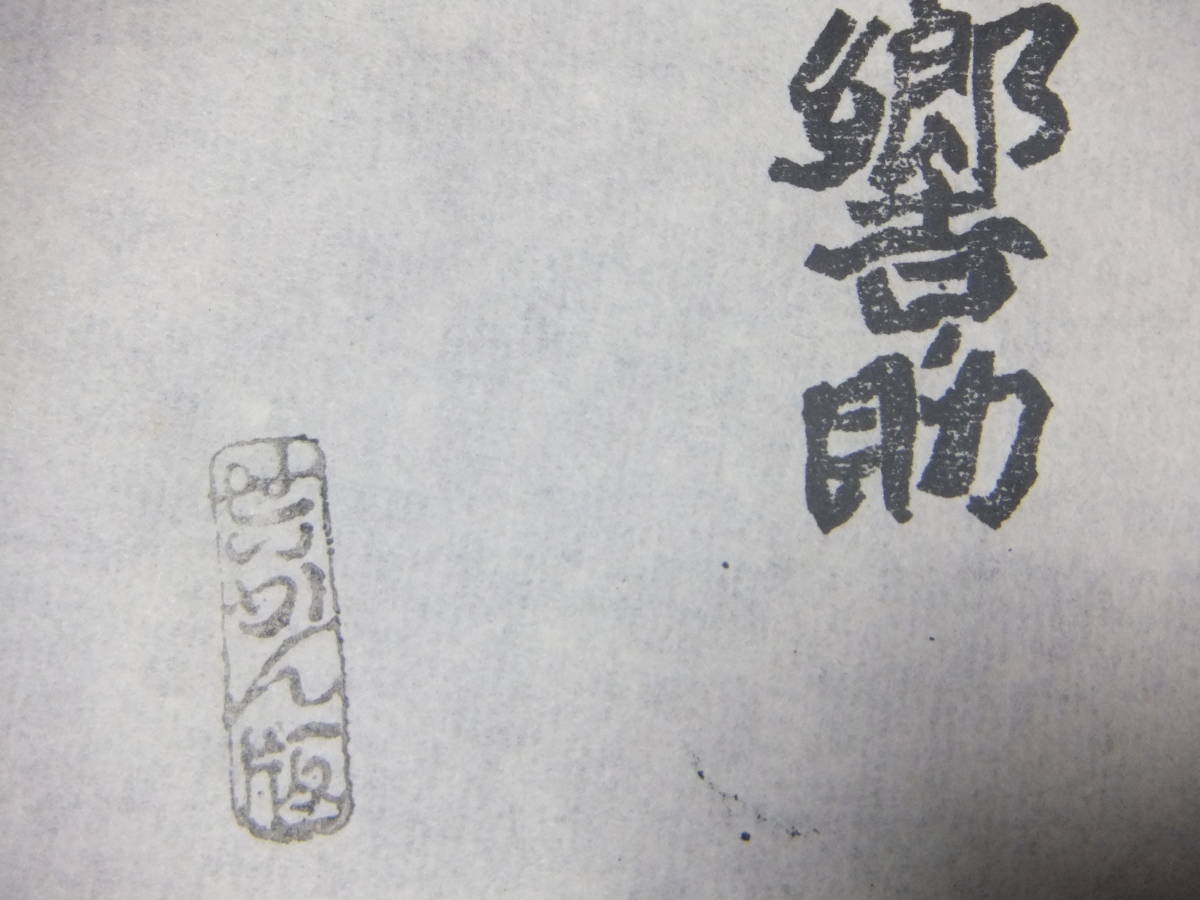 響助
かん版